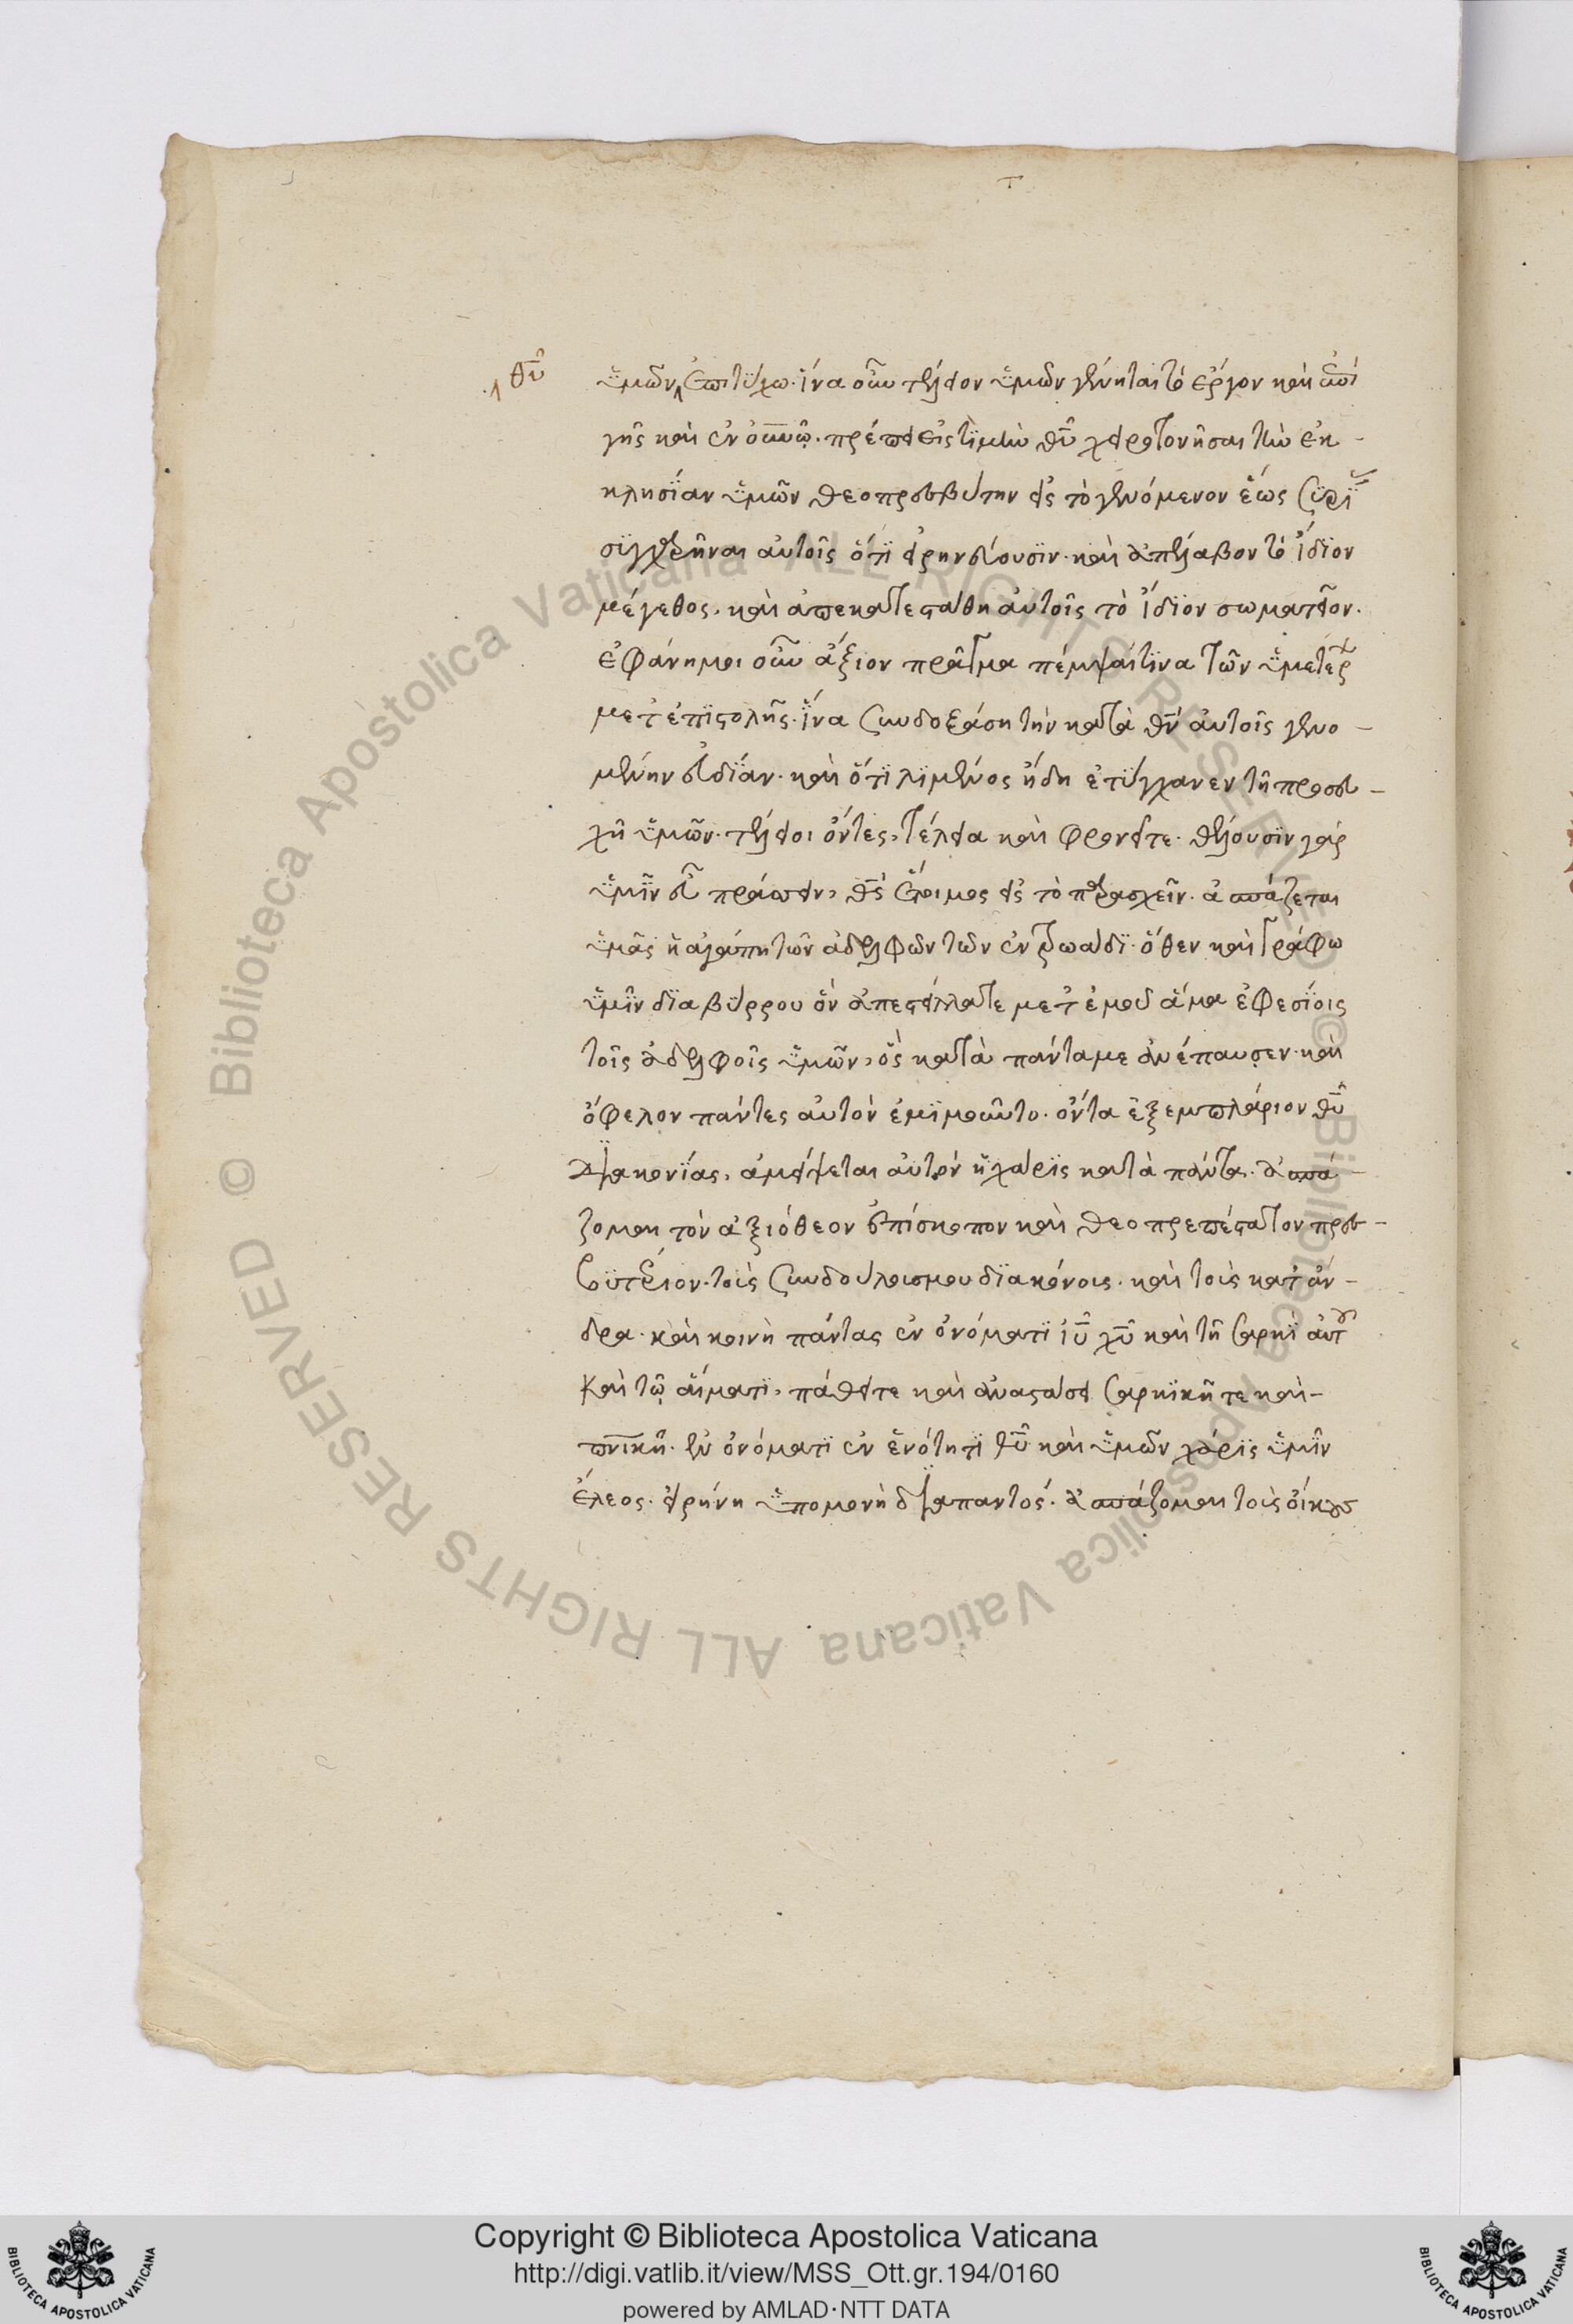 θῡ
ὑμῶν ἐπιτύχω. ἵνα οὖν τέλειον ὑμῶν γένηται τὸ ἔργον καὶ ἐπὶ
γῆς καὶ ἐν οὐνῶ. πρέπει εἰς τιμὴν θῦ χειροτονῆσαι τὴν ἐκ-
κλησίαν ὑμῶν θεοπρεσβύτην εἰς τὸ γενόμενον ἕως
συγχαρῆναι αὐτοῖς ὅτι εἰρηνεύουσιν. καὶ ἀπέλαβον τὸ ἴδιον
μέγεθος. καὶ ἀπεκατεστάθη αὐτοῖς τὸ ἴδιον σωματεῖον.
ἐφάνη μοι οὖν ἄξιον πρᾶγμα πέμψαί τινα τῶν ὑμετέρ
μετ' ἐπιστολῆς. ἵνα συνδοξάση τὴν κατὰ θν αὐτοῖς γενο-
μένην εὐδίαν. καὶ ὅτι λιμένος ἤδη ἐτύγχανεν τῆ προσευ-
χῆ ὑμῶν. τέλειοι ὄντες, τέλεια καὶ φρονεῖτε. θέλουσιν γὰρ
ὑμῖν εὖ πράσσειν, θς ἕτοιμος εἰς τὸ παρασχεῖν. ἀσπάζεται
ὑμᾶς ἡ ἀγάπη τῶν ἀδελφῶν τῶν ἐν τρωάδι. ὅθεν καὶ γράφω
ὑμῖν διὰ βύρρου ὃν ἀπεστείλατε μετ' ἐμοῦ ἅμα ἐφεσίοις
τοῖς ἀδελφοῖς ὑμῶν, ὃς κατὰ πάντα με ἀνέπαυσεν. καὶ
ὄφελον πάντες αὐτὸν ἐμιμοῦντο. ὄντα ἐξεμπλάριον θῦ
διακονίας, ἀμείψεται αὐτὸν ἡ χάρις κατὰ πάντα. ἀσπά-
ζομαι τὸν ἀξιόθεον ἐπίσκοπον καὶ θεοπρεπέστατον πρεσ-
βυτέριον. τοὺς συνδούλους μου διακόνους. καὶ τοὺς κατ' ἄν-
δρα. καὶ κοινῆ πάντας ἐν ὀνόματι ιῦ χῦ καὶ τῆ σαρκὶ αὐτοῦ
καὶ τῶ αἵματι, πάθει τε καὶ ἀναστάσει σαρκικῆ τε καὶ-
πνικῆ. ἐν ὀνόματι ἐν ἑνότητι θῦ καὶ ὑμῶν χάρις ὑμῖν
ἔλεος. εἰρήνη ὑπομονὴ διαπαντός. ἀσπάζομαι τοὺς οἴκους
Copyright © Biblioteca Apostolica Vaticana
http://digi.vatlib.it/view/MSS_Ott.gr.194/0160
powered by AMLAD·NTT DATA